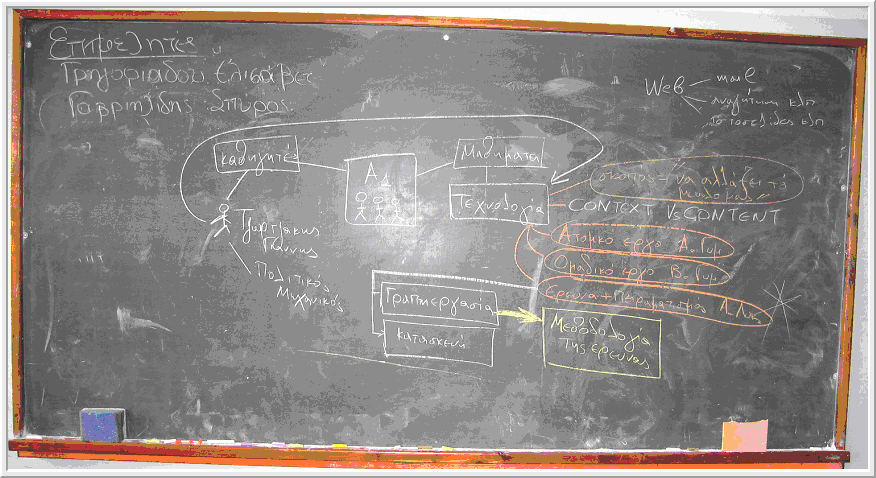 Επιμελητές
Γρηγοριάδου Ελισάβετ
Γαβριηλίδης Σπύρος
Web
mail
αναζήτηση κλπ
ιστοσελίδες κλπ
Καθηγητές
Α1
Μαθήματα
Τεχνολογία
σκοπός = να αλλάξει το
CONTEXT Vs CONTENT
Γιάννης
Πολιτικός
Μηχανικός
Ατομικό έργο Α Γυμ
Ομαδικό έργο Β Γυμ
Έρευνα + Πειραματισμός Α Λυκ.
Γραπτή εργασία
κατασκευή
Μεθοδολογία
της έρευνας